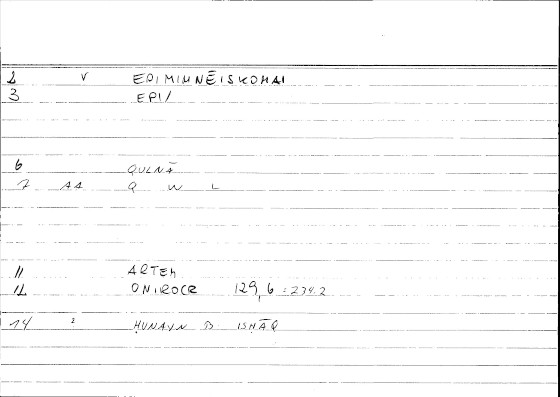 2 V EPIMIMNĒISKOMAI
3 EPI/
6 QULNĀ
7 AA Q W L
11 ARTEM
12 ONIROCR 129,6 : 234.2
14 2 ḤUNAYN B ISḤĀQ